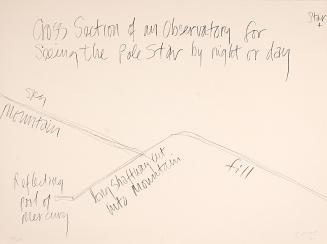 Cross Section of an Observatory for
Seeing the Pole Star by night or day
Star
+
Sky
Mountain
Reflecting
Pool of
Mercury
long shaft way cut
into Mountain
fill